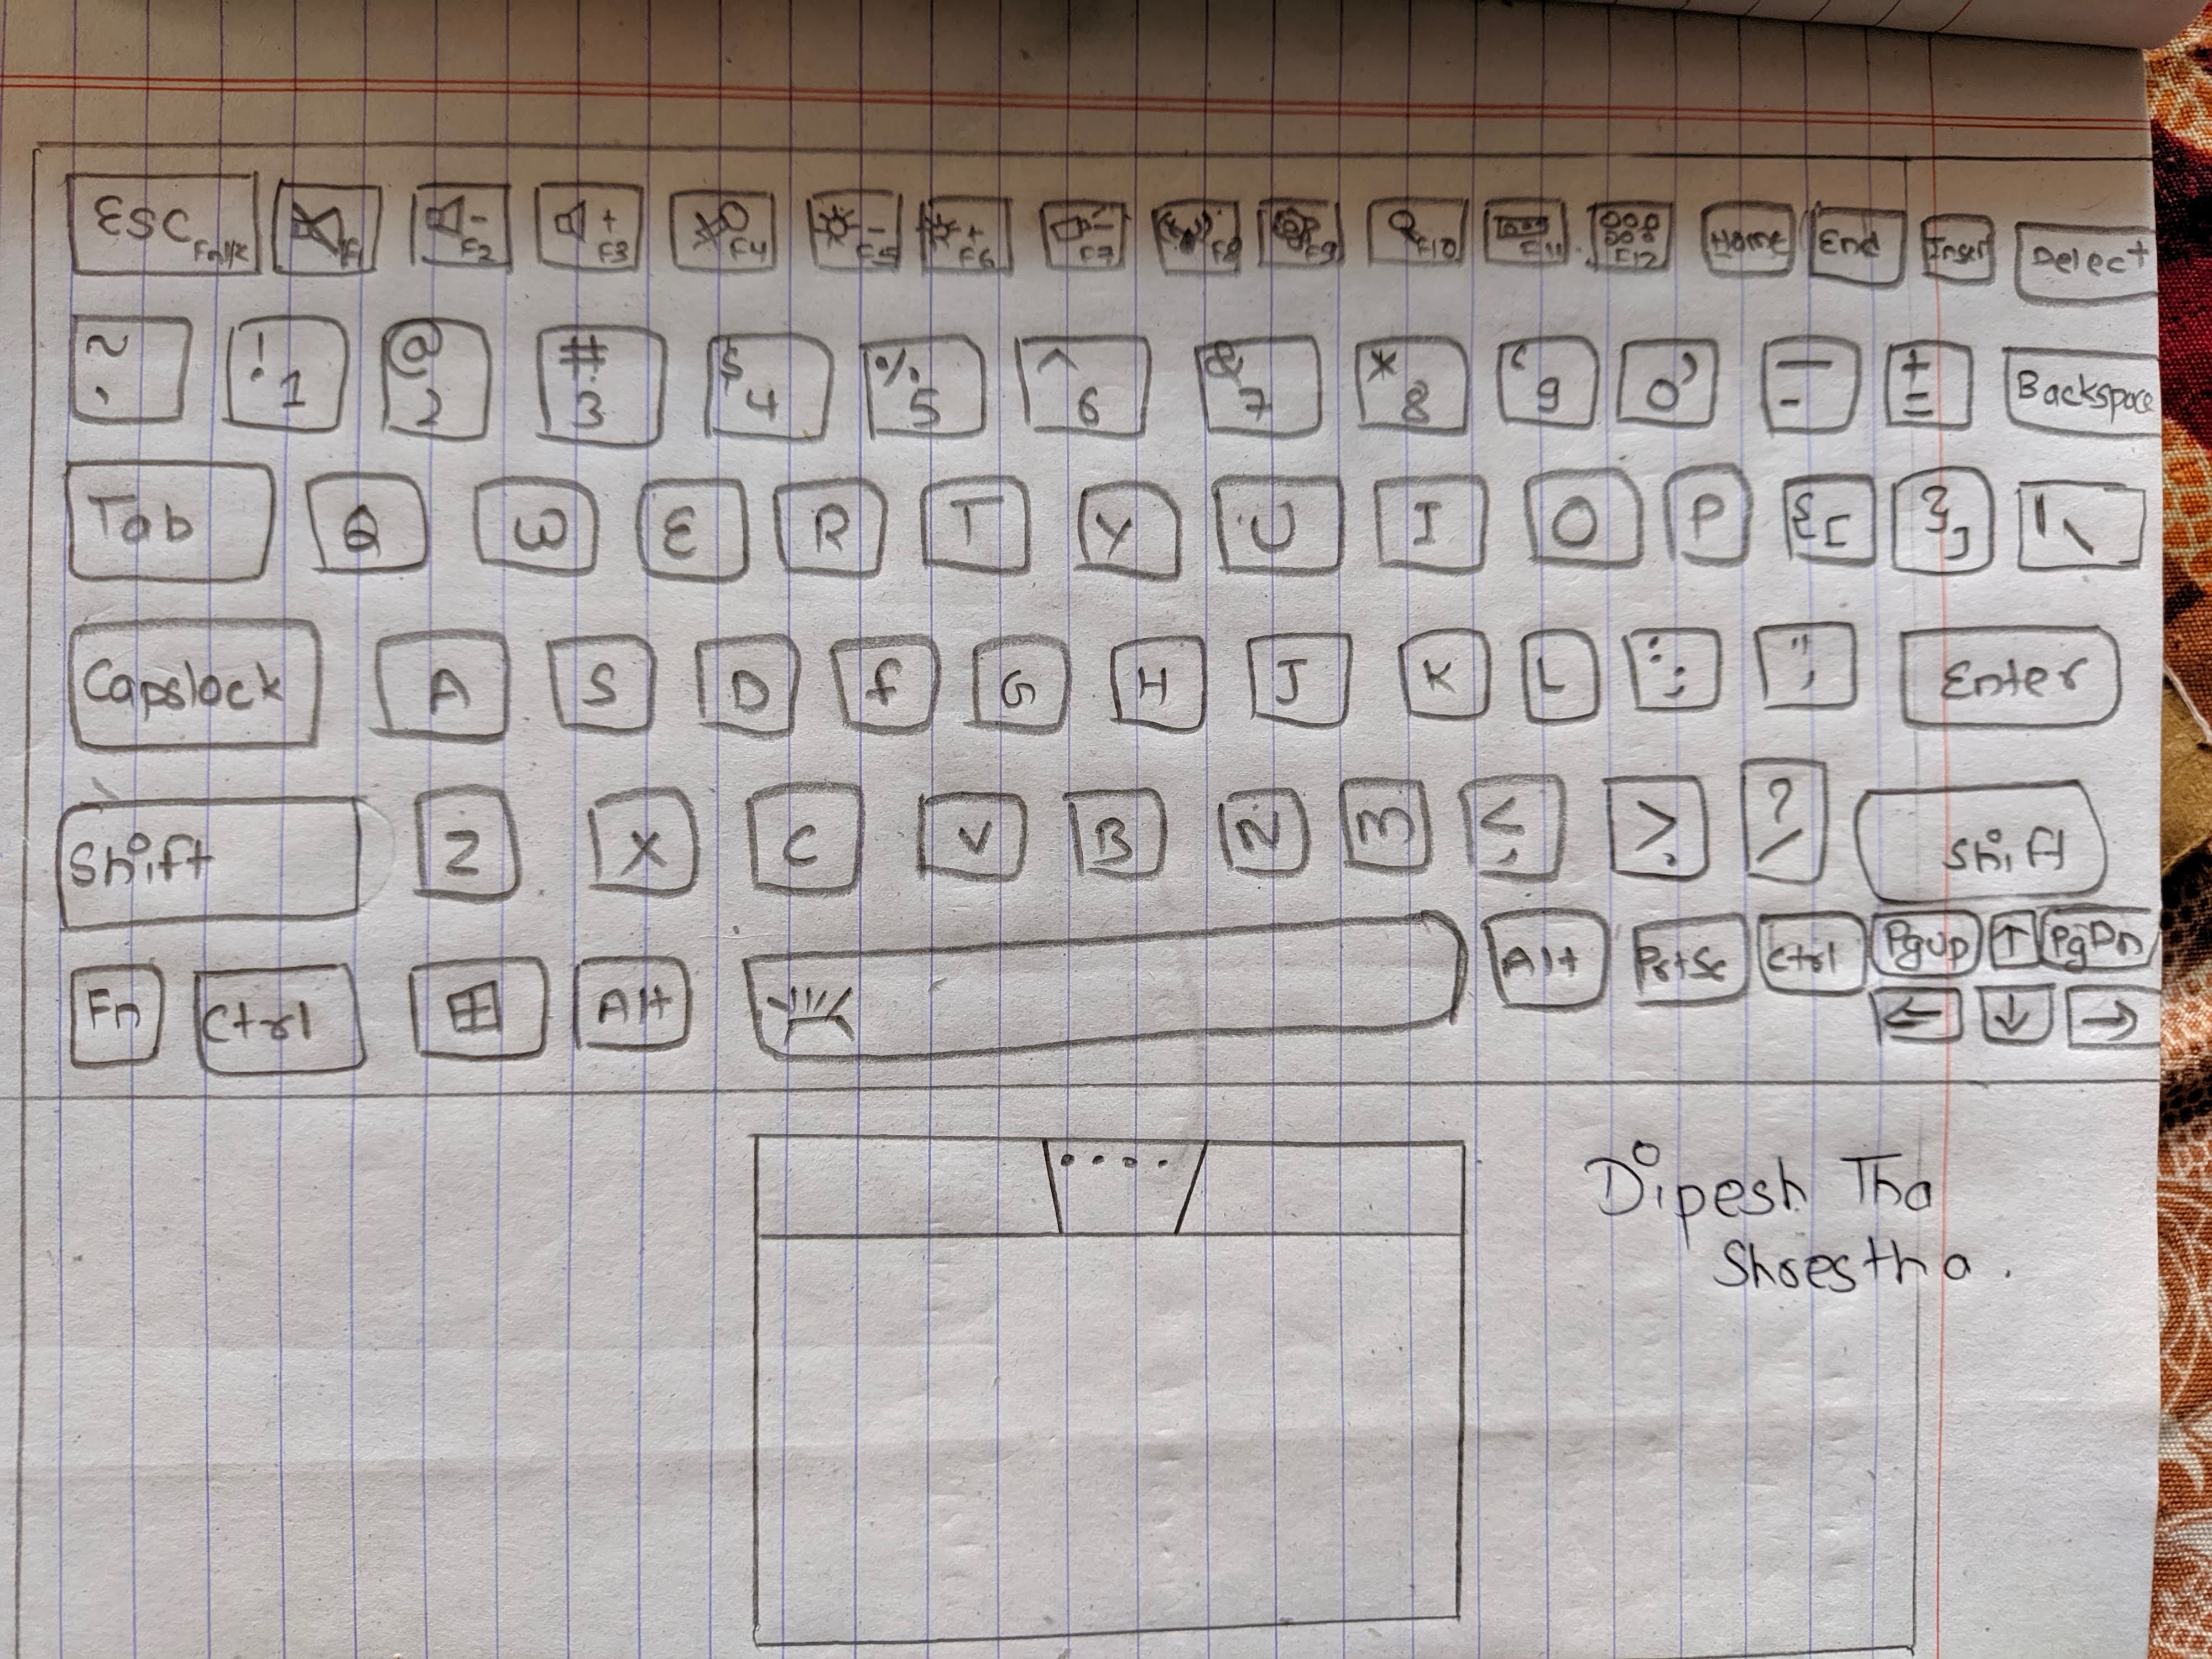 ESC FnLK F1 - F2 + F3 F4 - F5 + F6 F7 F8 F9 F10 F11 F12 Home End Insert Delect
~ , ! 1 @ 2 # 3 $ 4 % 5 ^ 6 & 7 * 8 ( 9 0 ) — - + = Backspace
Tab Q W E R T Y U I O P { [ } ] | \
Capslock A S D f G H J K L : ; " ' Enter
Shift Z X C V B N m < , > . ? / Shift
Fn Ctrl Alt Alt PrtSc Ctrl PgUp ↑ PgDn
← ↓ →
Dipesh Tha
Shrestha.